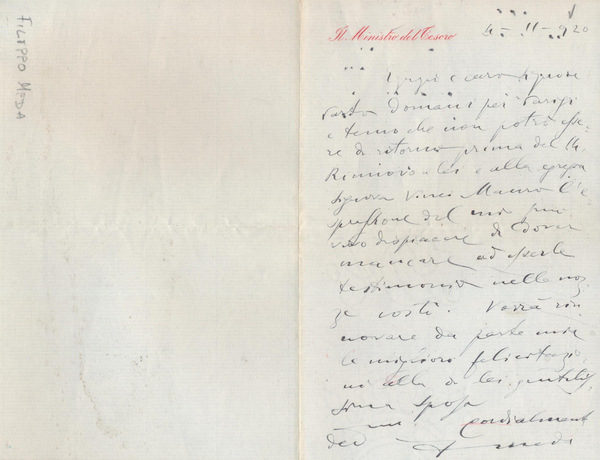 FILIPPO MEDA
Il Ministro del Tesoro 4-11-920
Egregio e caro signore
Parto domani per Parigi
e temo che non potrò esse-
re di ritorno prima del 14.
Rinnovo a lei e alla egregia
signora Vinci Mauro l'e-
spressione del mio più
vivo dispiacere di dover
mancare ad esserle
testimonio nelle noz-
ze costì. Vorrà rin-
novare da parte mia
le migliori felicitazio-
ni alla di lei gentilis-
sima sposa
cordialment
dev Fmeda